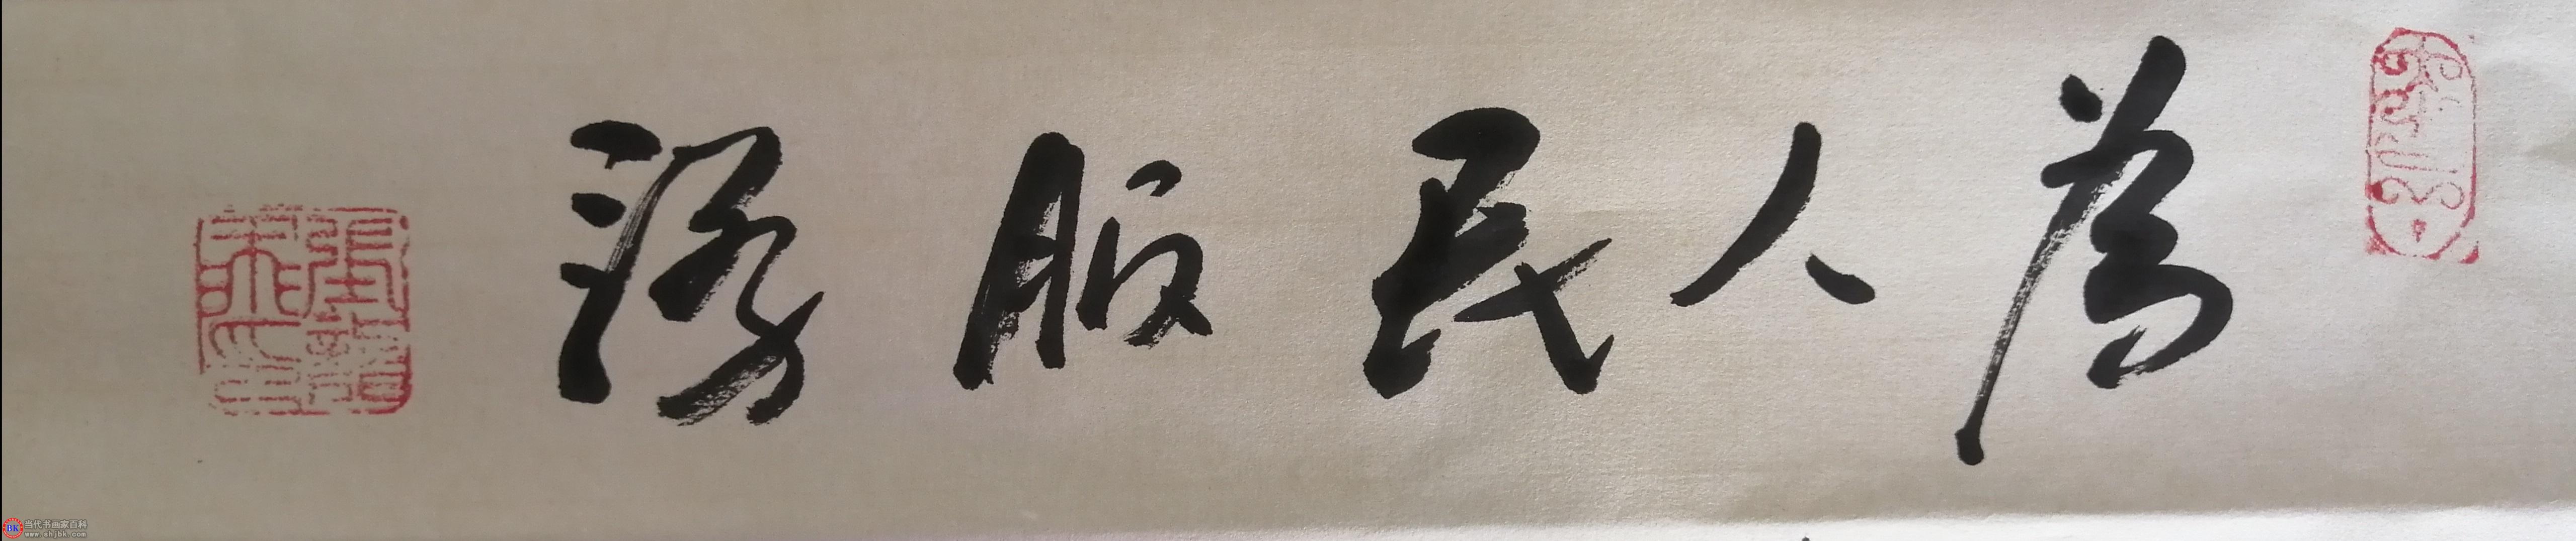 為人民服務
当代书画家百科
www.shjbk.com